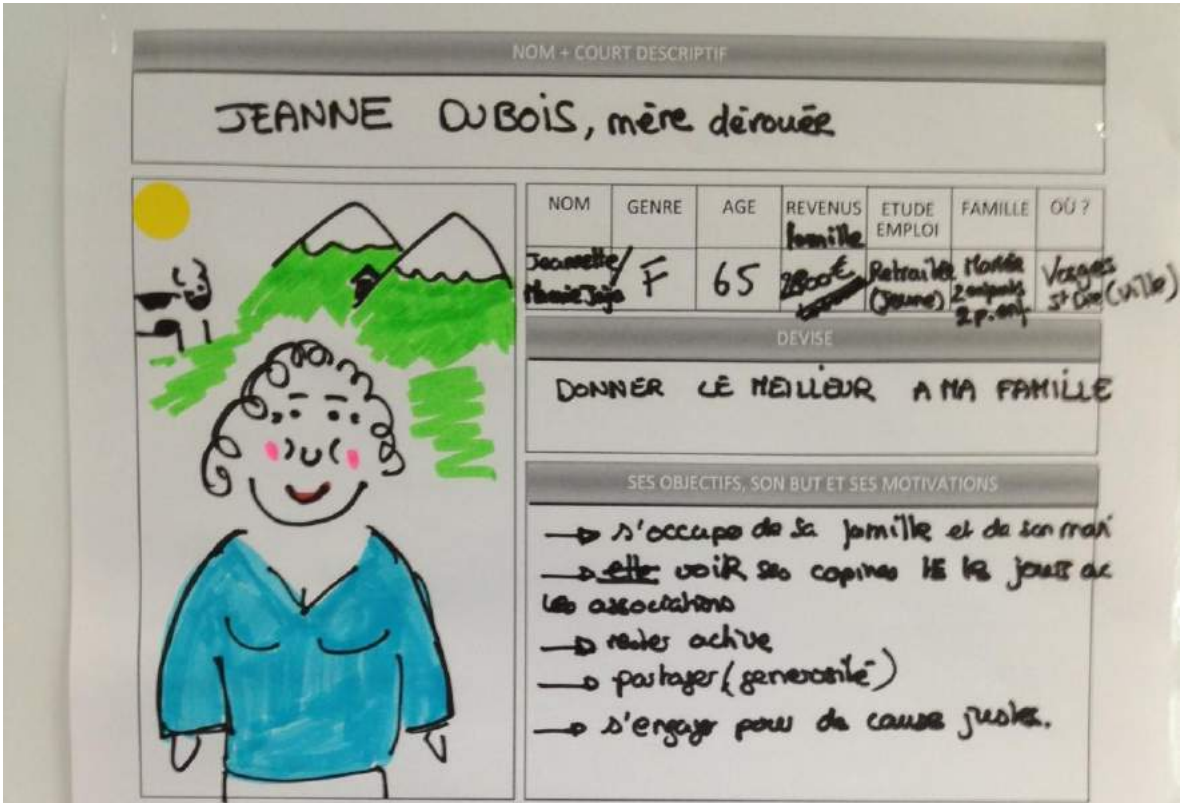 NOM + COURT DESCRIPTIF
JEANNE DUBOIS, mère dévouée
NOM
GENRE
AGE
REVENUS
famille
ETUDE
EMPLOI
FAMILLE
OÙ ?
Jeannette/
Mamie Jojo
F
65
2800€
Retraitée
(Jeune)
Mariée
2 enfants
2 p. enf
Vosges
St Dié (ville)
DEVISE
DONNER LE MEILLEUR A MA FAMILLE
SES OBJECTIFS, SON BUT ET SES MOTIVATIONS
→ s'occupe de sa famille et de son mari
→ elle voir ses copines ts les jours ac
les associations
→ rester active
→ partager (générosité)
→ s'engager pour de causes justes.